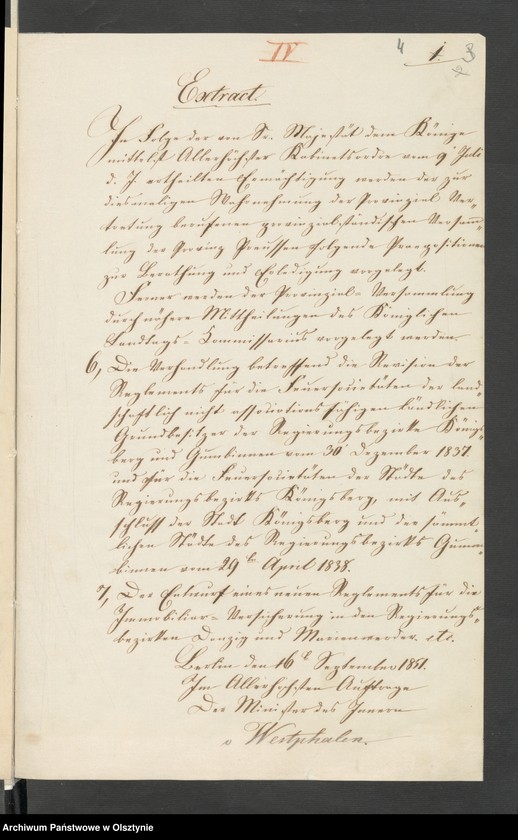 IV 4 1. 3
Extract.
In Folge der von Sr. Majestät dem Könige
mittelst Allerhöchster Kabinetsordre vom 9t Juli
d. J. ertheilten Ermächtigung werden der zur
diesmaligen Wahrnehmung der Provinzial Ver-
tretung berufenen provinzialständischen Versamm-
lung der Provinz Preussen folgende Propositionen
zur Berathung und Erledigung vorgelegt.
Ferner werden der Provinzial-Versammlung
durch nähere Mittheilungen des Königlichen
Landtags-Commissarius vorgelegt werden.
6, Die Verhandlung betreffend die Revision der
Reglements für die Feuersocietäten der land-
schaftlich nicht associationsfähigen ländlichen
Grundbesitzer der Regierungsbezirke Königs-
berg und Gumbinnen vom 30t Dezember 1837
und für die Feuersocietäten der Städte des
Regierungsbezirks Königsberg, mit Aus-
schluss der Stadt Königsberg und der sämmt-
lichen Städte des Regierungsbezirks Gum-
binnen vom 29ten April 1838.
7, Der Entwurf eines neuen Reglements für die
Immobiliar-Versicherung in den Regierungs-
bezirken Danzig und Marienwerder. etc.
Berlin den 16t September 1851.
Im Allerhöchsten Auftrage
Der Minister des Innern
v Westphalen.
Archiwum Państwowe w Olsztynie